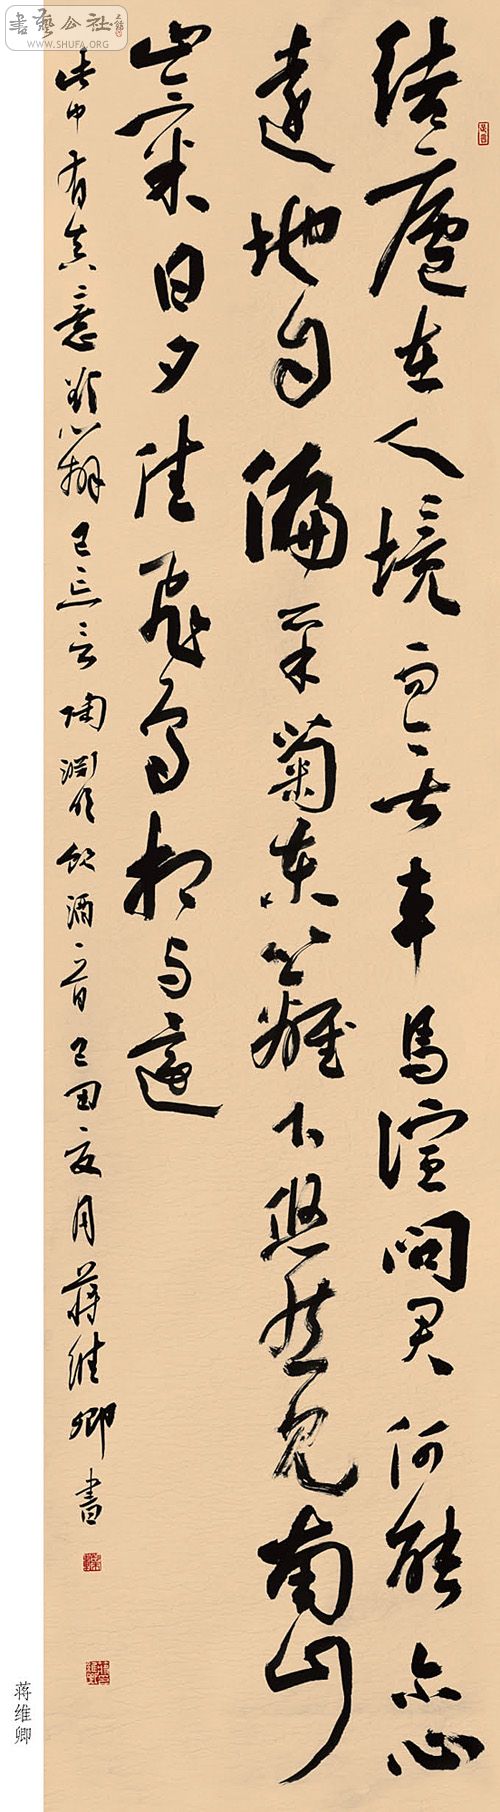 書藝公社
WWW.SHUFA.ORG
結廬在人境而無車馬喧問君何能尔心
遠地自偏采菊東籬下悠然見南山
山氣日夕佳飛鳥相与還
此中有真意欲辨已忘言陶淵明飲酒一首己丑夏月蔣維卿書
蒋维卿